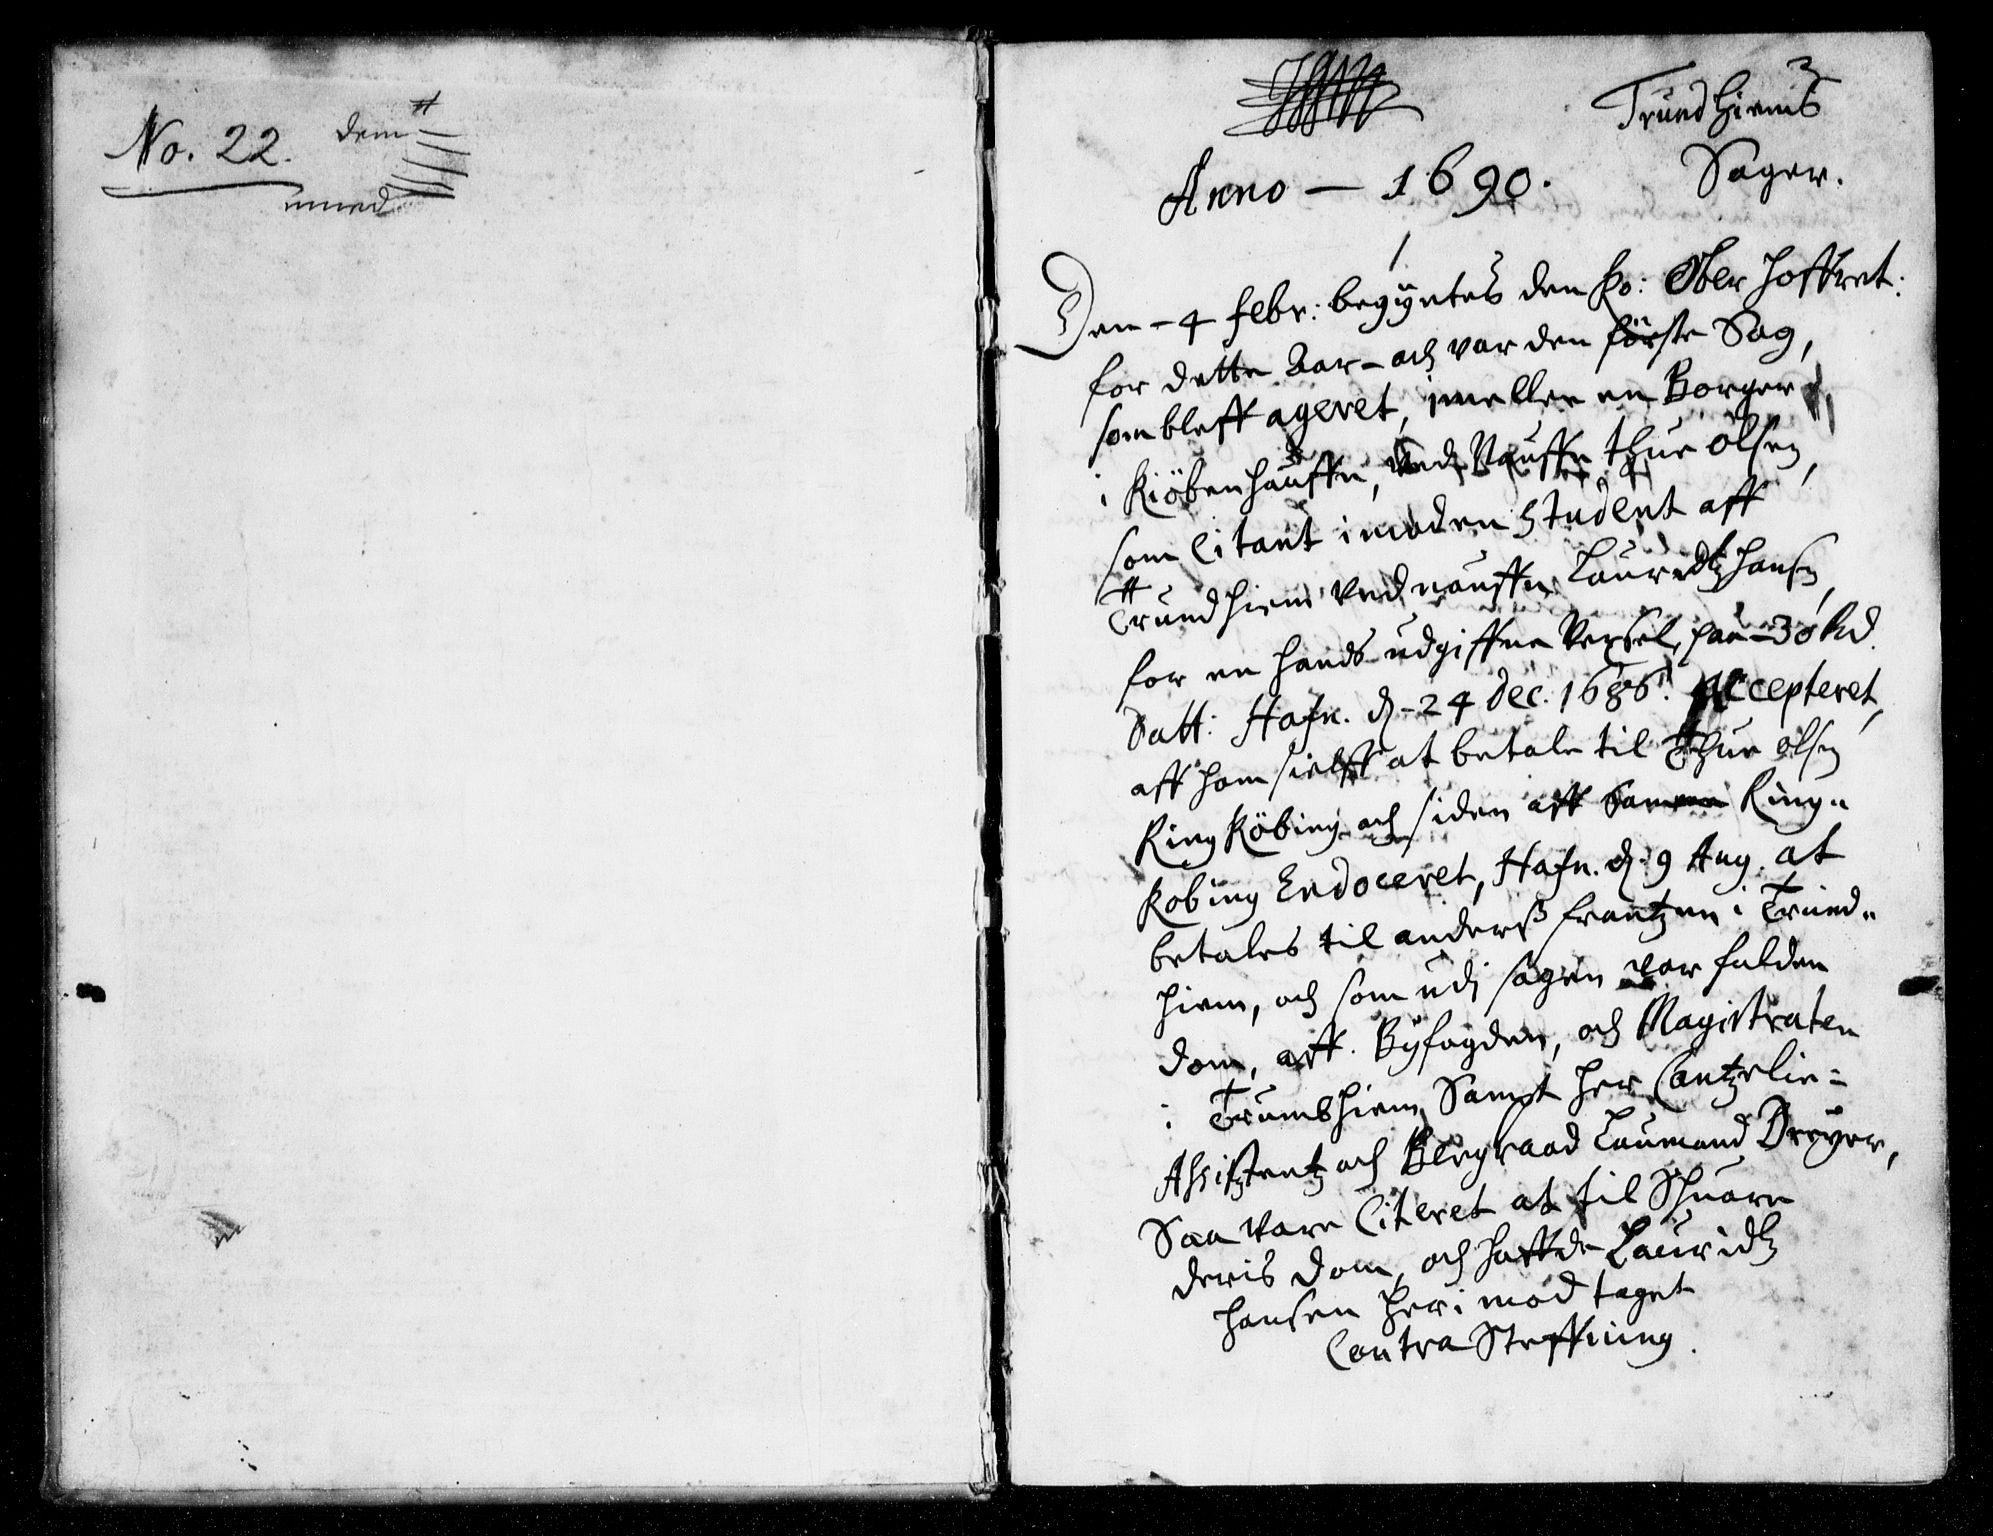 No. 22.
dem
mmed
Trundhiems
Sager.
Anno - 1690.
1
Den - 4 febr: begyntes den Ko: Ober hoffret:
for dette Aar - och var den förste Sag,
som bleff ageret, imellen en Borger
i Kiöbenhauffn, ved Nauffn thue olsen,
som Citant imoden Student aff
Trundhiem ved nauffn Lauridtz hansen,
for en hands udgiffne Vexsel, paa 30 Rd.
Datt: Hafn. d - 24 dec. 1686. Accepteret,
aff ham sielff at betale til Thue olsen
Ring Köbing och siden aff Samme Ring-
Kobing Endoceret, Hafn. d. 9 Aug. at
betales til anderß frantzen i Trund-
hiem, och som udj sagen var falden
dom, aff Byfogden, och Magistraten
i Trundhiem Sampt her Cantzelie-
Assistentz och Bergraad Laumand Dreyer,
Saa vare Citeret at til Schuare
deris dom, och haffde Lauridtz
hansen her imod taget
Contra Steffning.